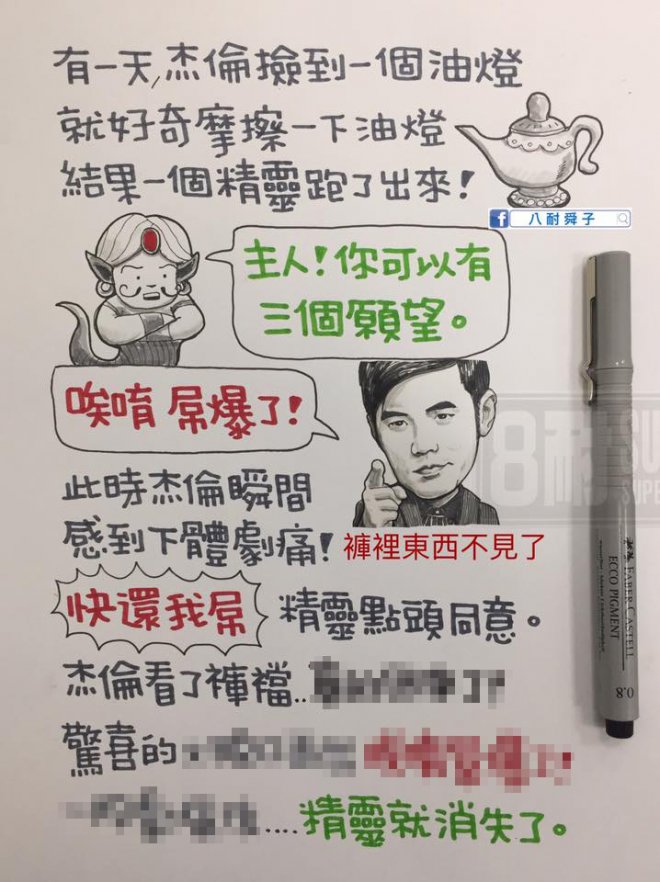 有一天,杰倫撿到一個油燈
就好奇摩擦一下油燈
結果一個精靈跑了出來!
f 八耐舜子
主人!你可以有
三個願望。
唉唷 屌爆了!
8耐
SU
SUPE
此時杰倫瞬間
感到下體劇痛! 褲裡東西不見了
快還我屌 精靈點頭同意。
杰倫看了褲襠..
驚喜的
....精靈就消失了。
FABER-CASTELL
ECCO PIGMENT
0.8